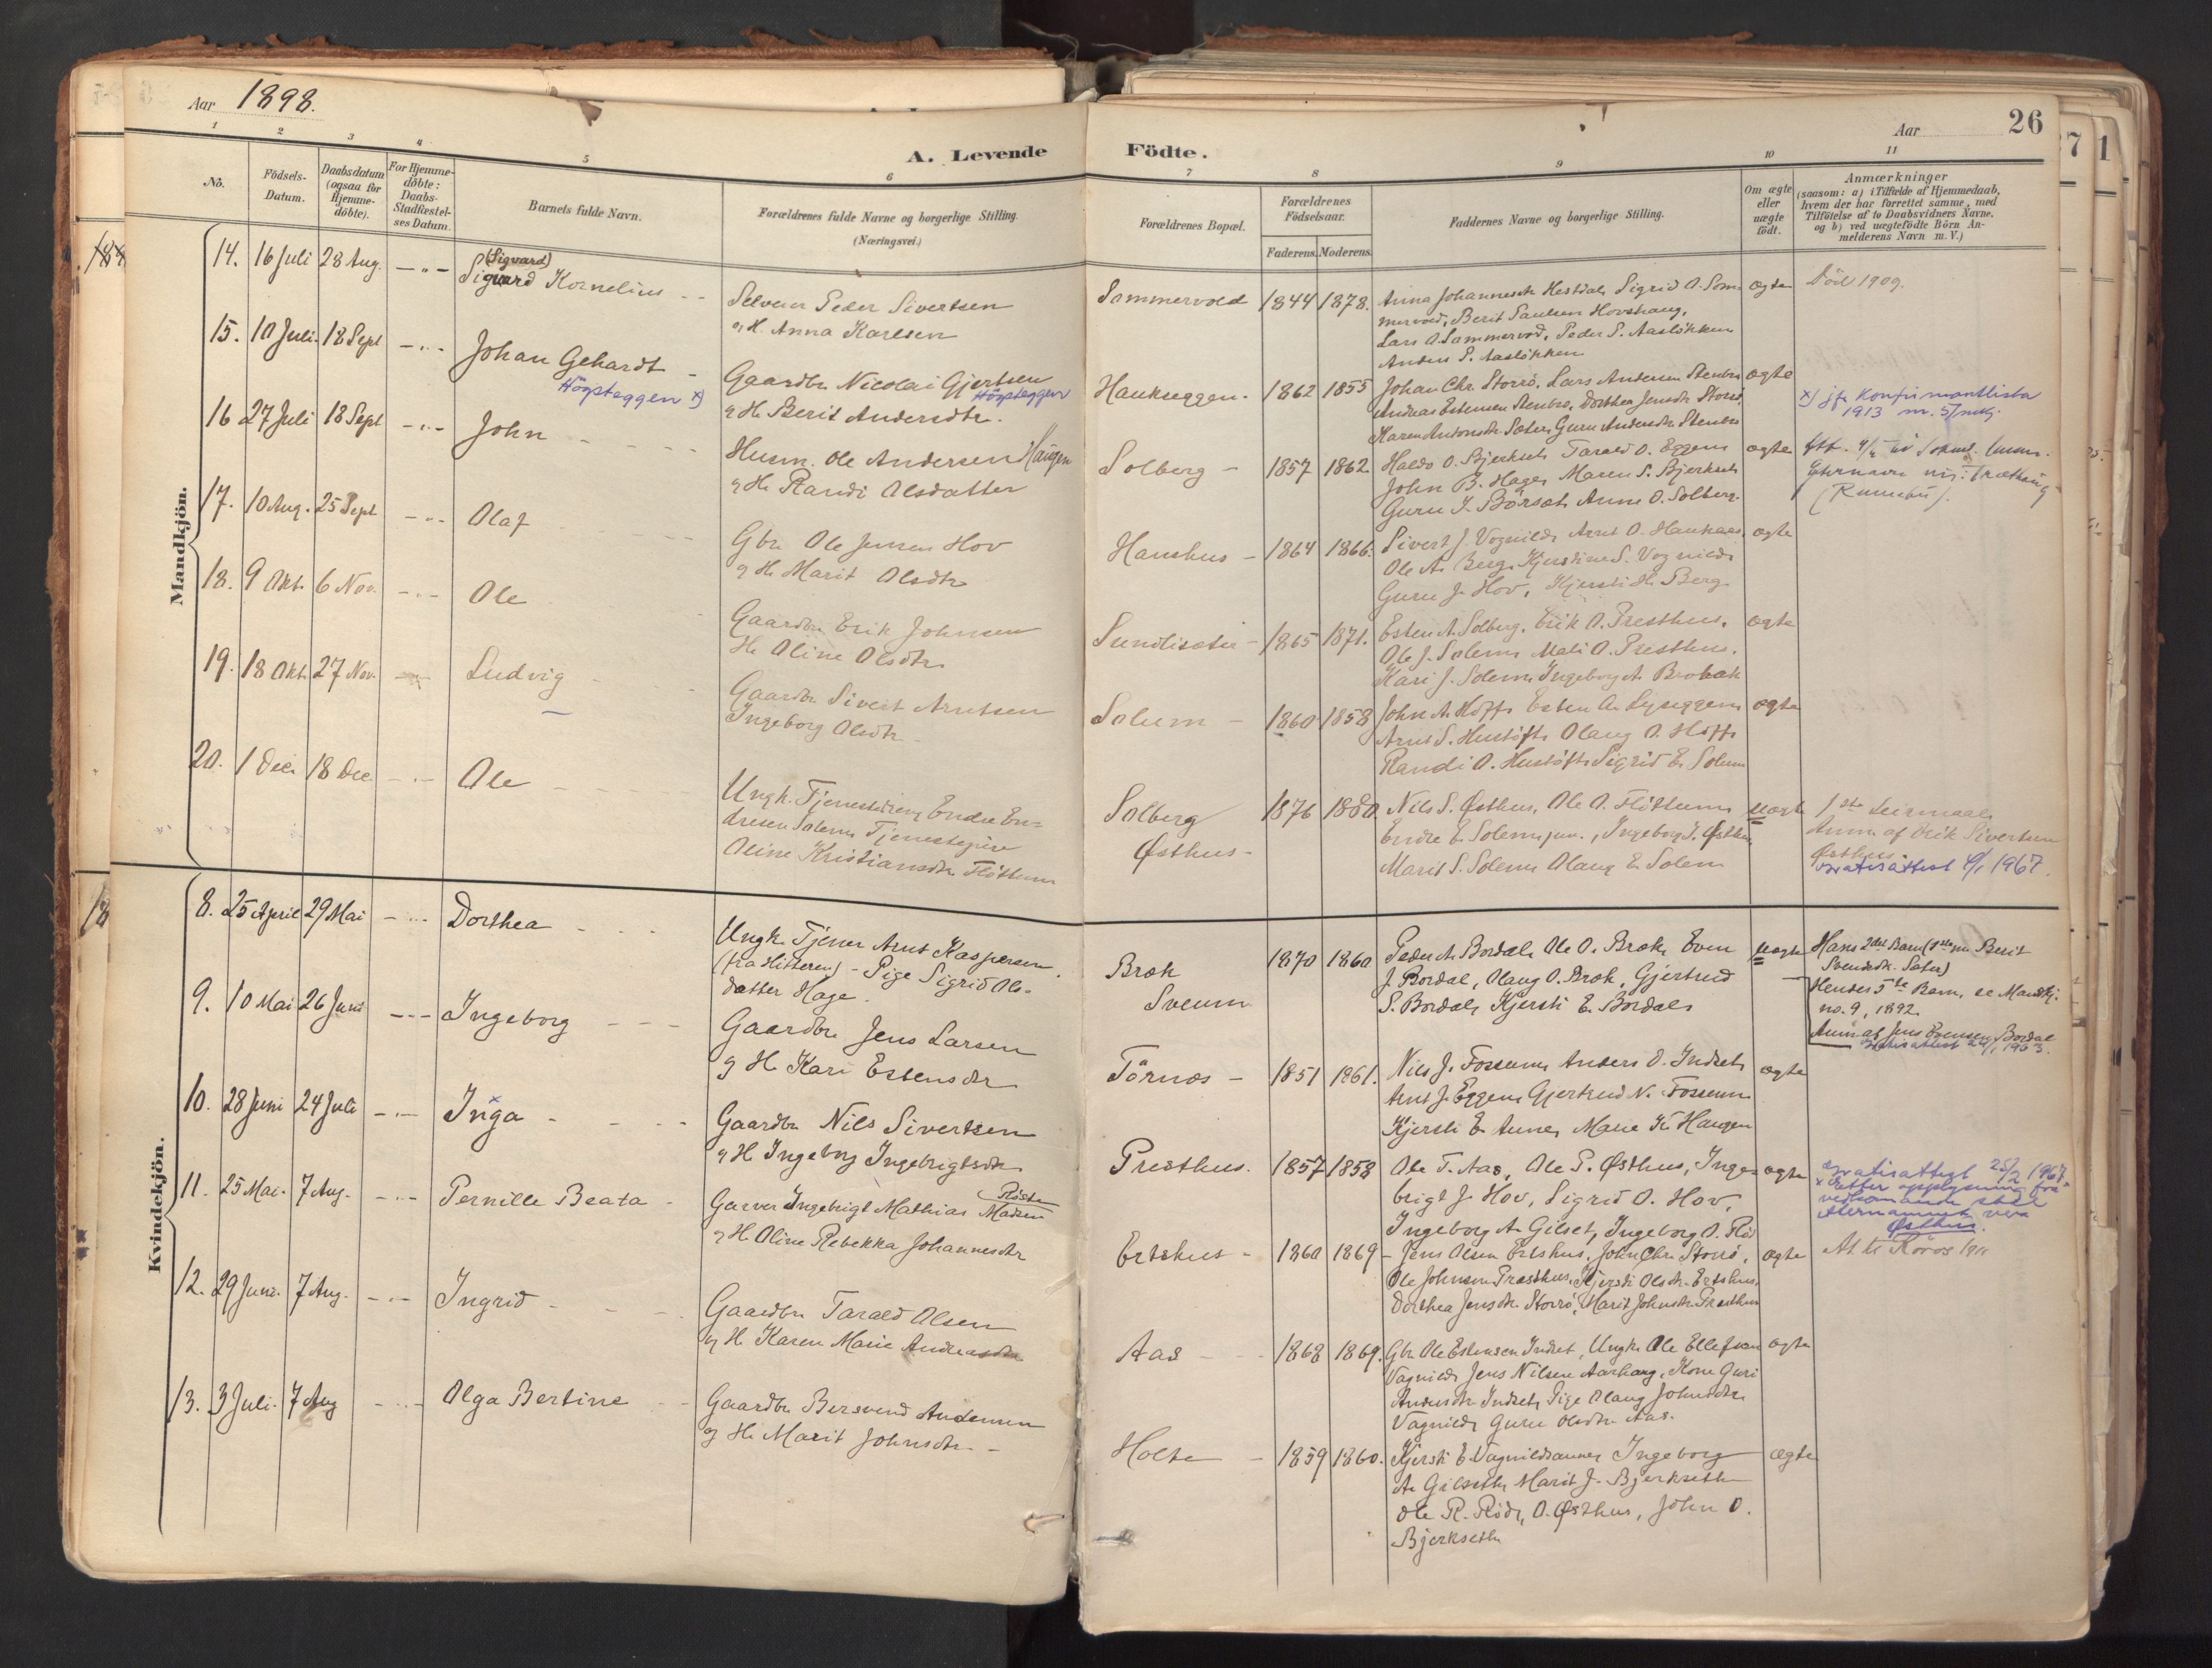 Aar 1898.
A. Levende
1 2 3 4 5 6
No.
Födsels-Datum.
Daabsdatum (ogsaa for Hjemme-döbte).
For Hjemme-döbte: Daabs-Stadfæstel-ses Datum.
Barnets fulde Navn.
Forældrenes fulde Navne og borgerlige Stilling.
(Næringsvei.)
Mandkjön.
14. 16 Juli 28 Aug. -"- (Sigvard)
Sigvard Kornelius
Selveier Peder Sivertsen
og H. Anna Karlsen
15. 10 Juli. 18 Sept -"- Johan Gehardt
Högseggen x)
Gaardbr Nicolai Gjertsen
Högseggen
og H. Berit Andersdtr.
16 27 Juli 18 Sept -"- John
Husm. Ole Andersen Haugen
og H. Randi Olsdatter
17. 10 Aug. 25 Sept -"- Olaf
Gbr. Ole Jensen Hov
og H. Marit Olsdtr
18. 9 Okt. 6 Nov. -"- Ole
Gaardbr Erik Johnsen
H. Oline Olsdtr.
19. 18 Okt. 27 Nov. Ludvig
Gaardbr Sivert Arntsen
Ingeborg Olsdtr
20. 1 Dec. 18 Dec. -"- Ole
Ungk. Tjenestedreng Endre En-
dresen Solem, Tjenestepige
Oline Kristiansdtr Flöttum
Kvindekjön.
8. 25 April 29 Mai -"- Dorthea
Ungk. Tjener Arnt Kaspersen
(fra Hitteren) - Pige Sigrid Ols-
datter Hage.
9. 10 Mai 26 Juni -"- Ingeborg
Gaardbr Jens Larsen
og H. Kari Estensdtr
10. 28 Juni 24 Juli -"- Inga x
Gaardbr Nils Sivertsen
og H. Ingeborg Ingebrigtsdtr
11. 25 Mai. 7 Aug. -"- Pernille Beata
Garver Ingebrigt Mathias Madsen
og H. Oline Rebekka Johannesdtr
12. 29 Juni. 7 Aug. -"- Ingrid
Gaardbr Tarald Olsen
og H. Karen Marie Andreasdtr
13. 3 Juli. 7 Aug -"- Olga Bertine
Gaardbr Bersvend Andersen
og H. Marit Johnsdtr.
Födte.
Aar 26
7 8 9 10 11
Forældrenes Bopæl.
Forældrenes Födselsaar.
Faderens. Moderens.
Faddernes Navne og borgerlige Stilling.
Om ægte eller uægte födt.
Anmærkninger
(saasom: a) i Tilfælde af Hjemmedaab,
hvem der har forrettet samme, med
Tilföielse af to Daabsvidners Navne.
og b) ved uægtefödte Börn An-
melderens Navn m. V.)
Sommervold 1844 1878. Anna Johannesdtr Hestdal, Sigrid O. Som-
mervold, Berit Paulsen Hovshaug,
Lars O. Sommervold, Peder P. Aaslökken
Anders P. Aaslökken
ægte
Död 1909.
Haukseggen. 1862 1855 Johan Chr. Storrö, Lars Andersen Stenbro
Andreas Estensen Stenbro, Dorthea Jensdtr Storrö,
Karen Antonsdtr Sæter, Guru Andersdtr Stenbro
ægte
x) jfr. Konfirmantlista
1913 nr. 5/mk.
Solberg - 1857 1862. Haldo O. Bjerkset, Tarald O. Eggen,
John B. Hage, Maren S. Bjerkset
Guru I. Börset, Anne O. Solberg.
ægte
Haushus - 1864 1866. Sivert J. Vognild, Arnt O. Haukaas,
Ole A. Berg, Kjerstine S. Vognild,
Guru J. Hov, Kjersti H. Berg
ægte
Sundliseter - 1865 1871. Esten A. Solberg, Erik O. Presthus,
Ole J. Solem, Mali O. Presthus,
Kari J. Solem, Ingeborg A. Brobak
ægte
Solum - 1860 1858 John A. Hoff, Esten A. Lyseggen
Arnt S. Hustöft, Olaug O. Hoff
Randi O. Hustöft, Sigrid E. Solum
ægte
Solberg
Østhus - 1876 1880. Nils S. Østhus, Ole O. Flöttum,
Endre E. Solem jun., Ingeborg J. Østhus,
Marit S. Solem, Olaug E. Solem
uægte
1ste Leiermaal,
Anm. af Erik Sivertsen
Østhus.
Gratisattest 4/1 1967.
Bræk
Sveum 1870 1860 Peder A. Bordal, Ole O. Bræk, Even
J. Bordal, Olaug O. Bræk, Gjertrud
S. Bordal, Kjersti E. Bordal
uægte
Hans 2det Barn (1ste m. Berit
Svendsdtr. Sæter)
Hendes 5te Barn, se Mandkj.
no. 9, 1892.
Anm. af Jens Evensen Bordal
Törnæs - 1851 1861. Nils J. Fossum, Anders O. Indset,
Arnt J. Eggen, Gjertrud N. Fossum
Kjersti E. Aune, Marie K. Haugen
ægte
Presthus. 1857 1858 Ole T. Aas, Ole P. Østhus, Inge-
brigt J. Hov, Sigrid O. Hov,
Ingeborg A. Gilset, Ingeborg O. Röd
ægte
Gratisattest 25/2 1967.
x Etter opplysning fra
vedkommende skal
etternamnet vera
Østhus.
Ertshus - 1860 1869 - Jens Olsen Ertshus, John Chr. Storrö,
Ole Johnsen Præsthus, Kjersti Olsdtr. Ertshus,
Dorthea Jensdtr. Storrö, Marit Johnsdtr. Præsthus
ægte
Aas - 1868 1869. Gbr. Ole Estensen Indset, Ungk. Ole Ellefsen
Vagnild, Jens Nilsen Aarhaug, Kone Guri
Andersdtr Indset, Pige Olaug Johnsdtr
Vagnild, Guru Olsdtr Aas.
ægte
Holte - 1859 1860. Kjersti E. Vagnildsaune, Ingeborg
A. Gilseth, Marit J. Bjerkseth
Ole R. Röd, O. Østhus, John O.
Bjerkseth
ægte